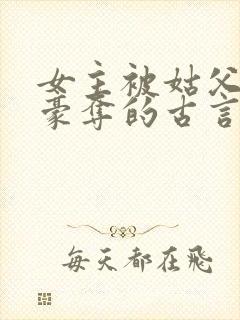 女主被姑父
豪夺的古言
每天都在飛